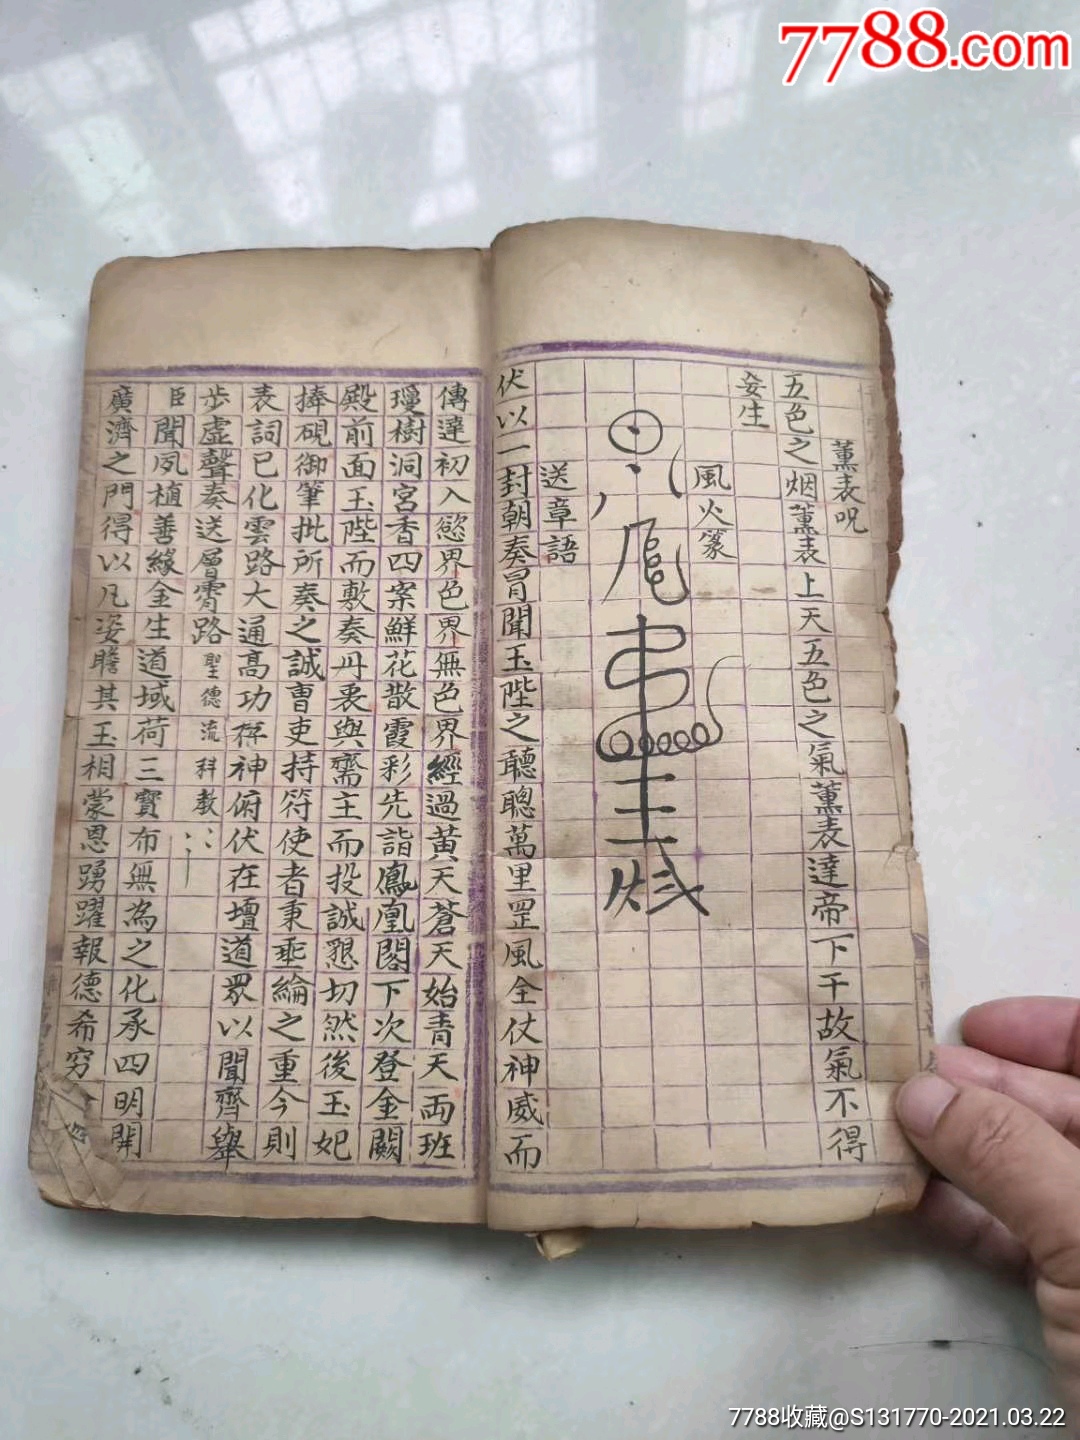 7788.com
薰表呪
五色之烟薰表上天五色之氣薰表達帝下干故氣不得
妄生
風火篆
送章語
伏以一封朝奏冐聞玉陛之聽聰萬里罡風全仗神威而
傳達初入慾界色界無色界經過黃天蒼天始青天両班
瓊樹洞宮香四案鮮花散霞彩先詣鳳凰閣下次登金闕
殿前面玉陛而敷奏丹衷與齋主而投誠懇切然後玉妃
捧硯御筆批所奏之誠曺吏持符使者秉乖綸之重今則
表詞已化雲路大通高功稱神俯伏在壇道眾以聞齊舉
步虛聲奏送層霄路聖德流科教
臣聞夙植善緣金生道域荷三寶布無為之化承四明開
廣濟之門得以凡姿瞻其玉相蒙恩踴躍報德希穷
7788收藏@S131770-2021.03.22